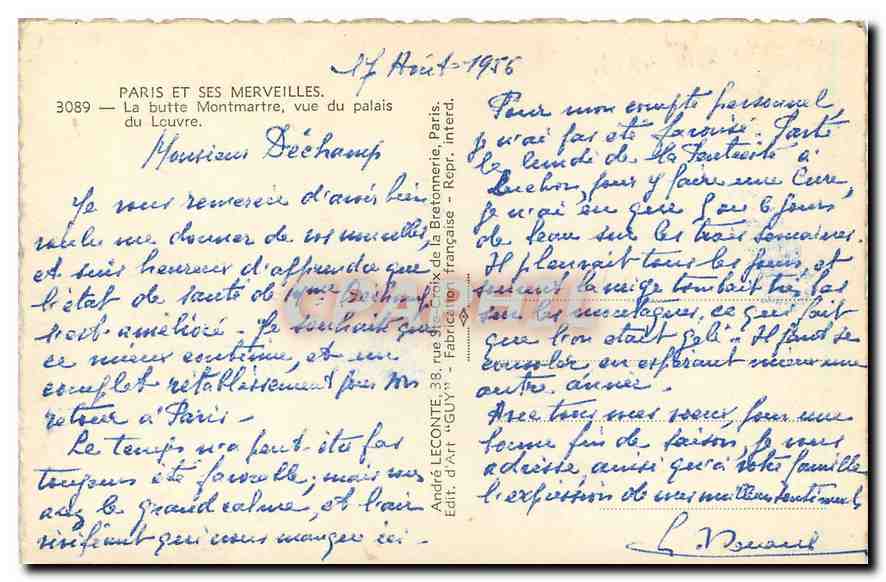 17 Août - 1956
PARIS ET SES MERVEILLES.
3089 — La butte Montmartre, vue du palais
du Louvre.
Monsieur Déchamp
Je vous remercie d'avoir bien
voulu me donner de vos nouvelles,
et suis heureux d'apprendre que
l'état de santé de Mme Déchamp
s'est amélioré - Je souhaite que
ce mieux continue, et un
complet rétablissement pour son
retour à Paris -
Le temps n'a peut-être pas
toujours été favorable, mais vous
avez le grand calme, et l'air
vivifiant qui nous manque ici -
André LECONTE, 38, rue Ste-Croix de la Bretonnerie, Paris.
Edit. d'Art "GUY" - Fabrication française - Repr. interd.
Pour mon compte personnel,
je n'ai pas été favorisé - Parti
le lundi de la Pentecôte à
Luchon, pour y faire une Cure,
je n'ai eu que 5 ou 6 jours
de beau sur les trois semaines.
Il pleuvait tous les jours et
souvent la neige tombait très bas
sur les montagnes, ce qui fait
que l'on était gelé - Il faut se
consoler, en espérant mieux une
autre année -
Avec tous mes voeux, pour une
bonne fin de saison, je vous
adresse ainsi qu'à votre famille
l'expression de mes meilleurs sentiments
CPAPHIL